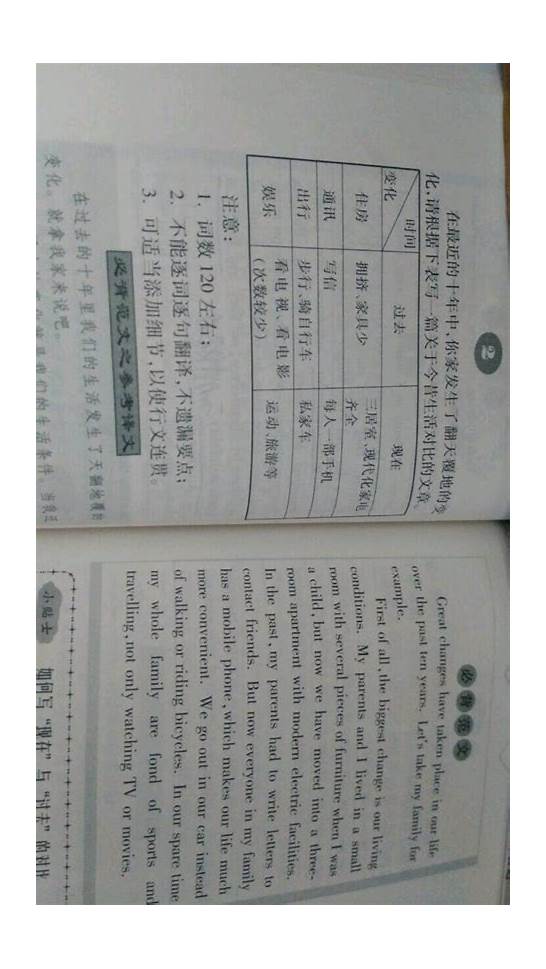 2
在最近的十年中,你家发生了翻天覆地的变
化,请根据下表写一篇关于今昔生活对比的文章。
时间
变化
过去
现在
住房
拥挤、家具少
三居室、现代化家电
齐全
通讯
写信
每人一部手机
出行
步行、骑自行车
私家车
娱乐
看电视、看电影
(次数较少)
运动、旅游等
注意:
1. 词数120左右;
2. 不能逐词逐句翻译,不遗漏要点;
3. 可适当添加细节,以使行文连贯。
必背范文之参考译文
在过去的十年里我们的生活发生了天翻地覆的
变化。就拿我家来说吧。
我们的生活条件。当我还
必背范文
Great changes have taken place in our life
over the past ten years. Let's take my family for
example.
First of all, the biggest change is our living
conditions. My parents and I lived in a small
room with several pieces of furniture when I was
a child, but now we have moved into a three-
room apartment with modern electric facilities.
In the past, my parents had to write letters to
contact friends. But now everyone in my family
has a mobile phone, which makes our life much
more convenient. We go out in our car instead
of walking or riding bicycles. In our spare time
my whole family are fond of sports and
travelling, not only watching TV or movies.
小贴士
如何写“现在”与“过去”的对比